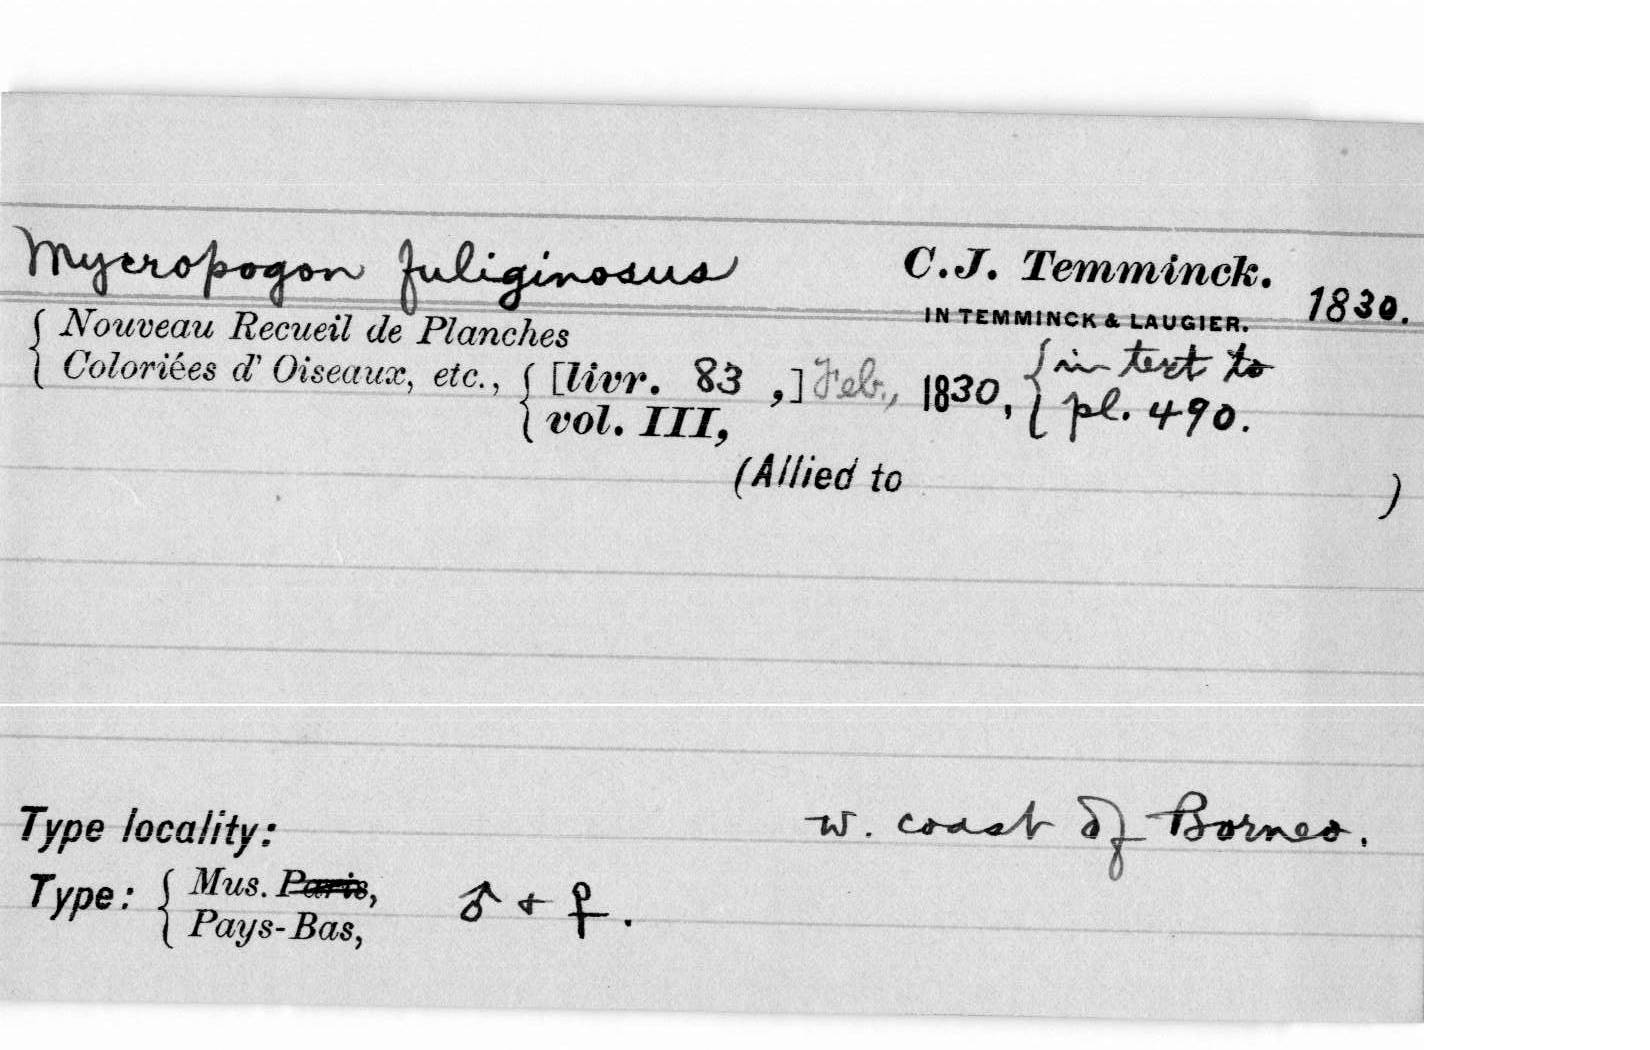 Mycropogon fuliginosus C.J. Temminck.
IN TEMMINCK & LAUGIER. 1830.
{ Nouveau Recueil de Planches
Coloriées d' Oiseaux, etc., { [livr. 83 ,] Feb., 1830, { in text to
vol. III, pl. 490.
(Allied to )
Type locality: W. coast of Borneo.
Type: { Mus. Paris, ♂ + ♀.
Pays-Bas,